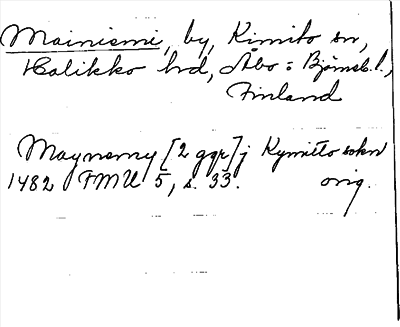 Mainiemi, by, Kimito sn,
Halikko hd, Åbo = Björneb. l.,
Finland
Maynemy [2 ggr] j Kymitto sokn
1482 FMU 5, s. 33. orig.